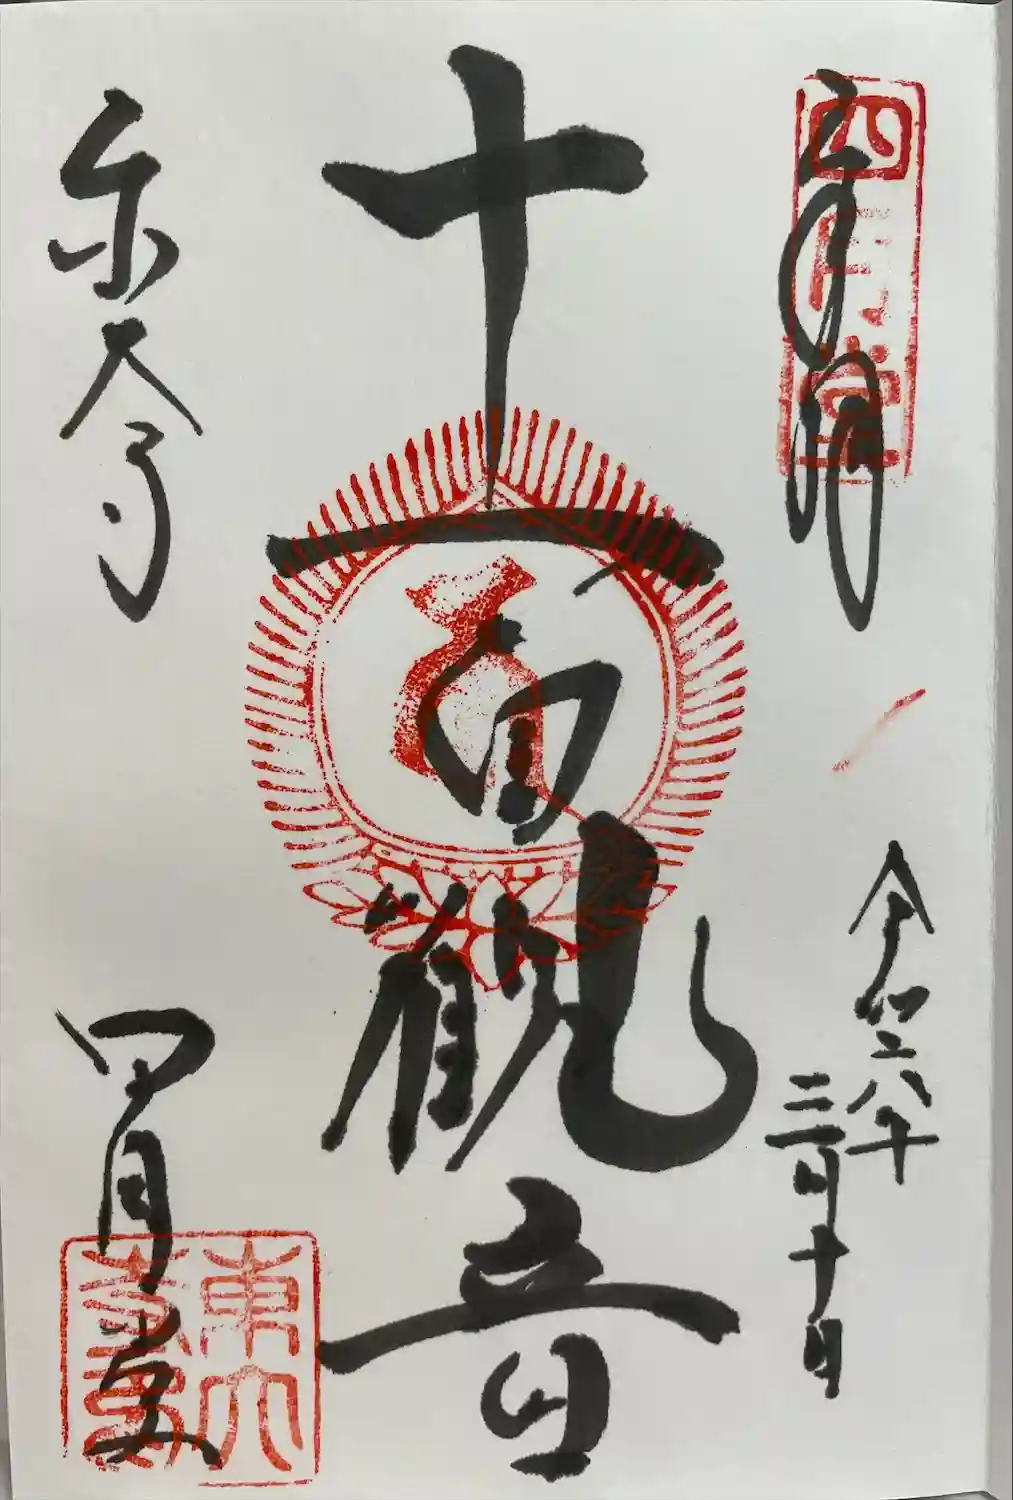 奉拝
四月堂
令和六年
三月十日
十一面観音
東大寺
四月堂
東大寺